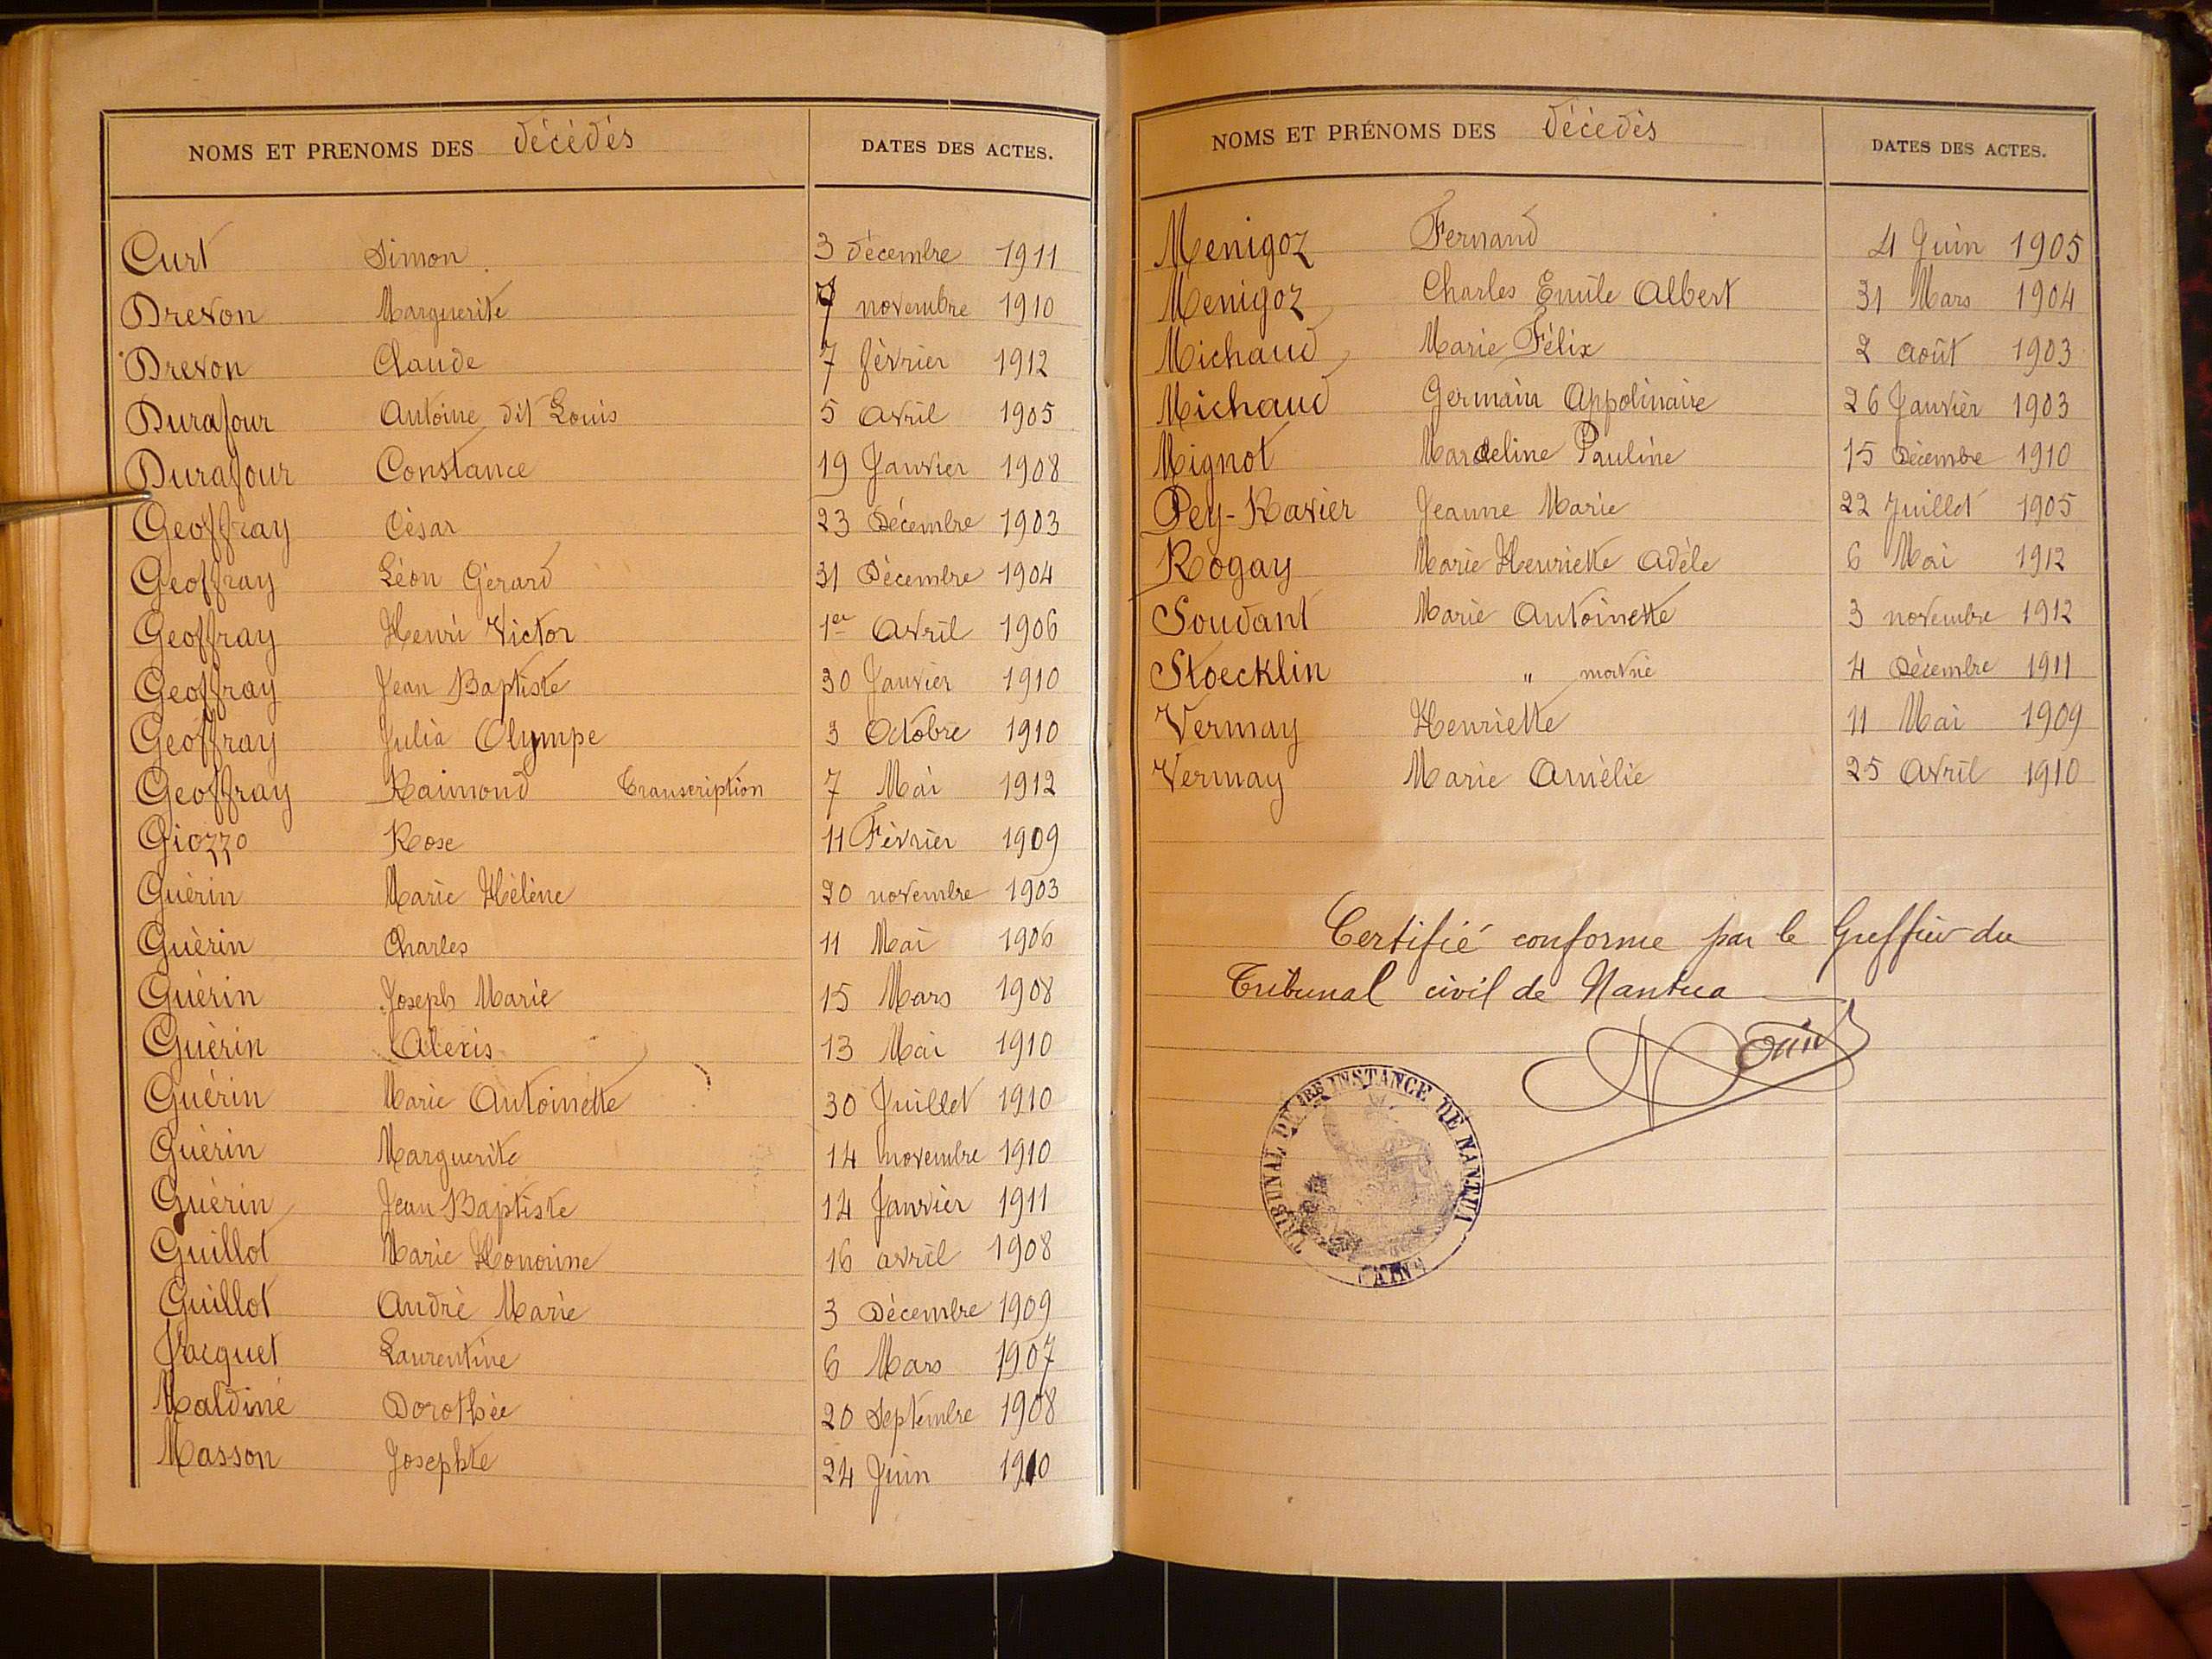 NOMS ET PRENOMS DES décédés DATES DES ACTES.
Curt Simon 3 décembre 1911
Drevon Marguerite 7 novembre 1910
Drevon Claude 7 février 1912
Durafour Antoine dit Louis 5 Avril 1905
Durafour Constance 19 Janvier 1908
Geoffray César 23 Décembre 1903
Geoffray Léon Gérard 31 Décembre 1904
Geoffray Henri Victor 1er Avril 1906
Geoffray Jean Baptiste 30 Janvier 1910
Geoffray Julia Olympe 3 Octobre 1910
Geoffray Raimond Transcription 7 Mai 1912
Giozzo Rose 11 Février 1909
Guérin Marie Hélène 20 novembre 1903
Guérin Charles 11 Mai 1906
Guérin Joseph Marie 15 Mars 1908
Guérin Alexis 13 Mai 1910
Guérin Marie Antoinette 30 Juillet 1910
Guérin Marguerite 14 novembre 1910
Guérin Jean Baptiste 14 Janvier 1911
Guillot Marie Honorine 16 avril 1908
Guillot André Marie 3 Décembre 1909
Jacquet Laurentine 6 Mars 1907
Maldiné Dorothée 20 Septembre 1908
Masson Josephte 24 Juin 1910
NOMS ET PRÉNOMS DES décédés DATES DES ACTES.
Menigoz Fernand 4 Juin 1905
Menigoz Charles Emile Albert 31 Mars 1904
Michaud Marie Félix 2 août 1903
Michaud Germain Appolinaire 26 Janvier 1903
Mignot Marceline Pauline 15 Décembre 1910
Pey-Ravier Jeanne Marie 22 Juillet 1905
Rogay Marie Henriette Adèle 6 Mai 1912
Soudant Marie Antoinette 3 novembre 1912
Stoecklin " mort né 4 Décembre 1911
Vermay Henriette 11 Mai 1909
Vermay Marie Amélie 25 Avril 1910
Certifié conforme par le Greffier du
Tribunal civil de Nantua
TRIBUNAL DE 1ERE INSTANCE DE NANTUA
(AIN)